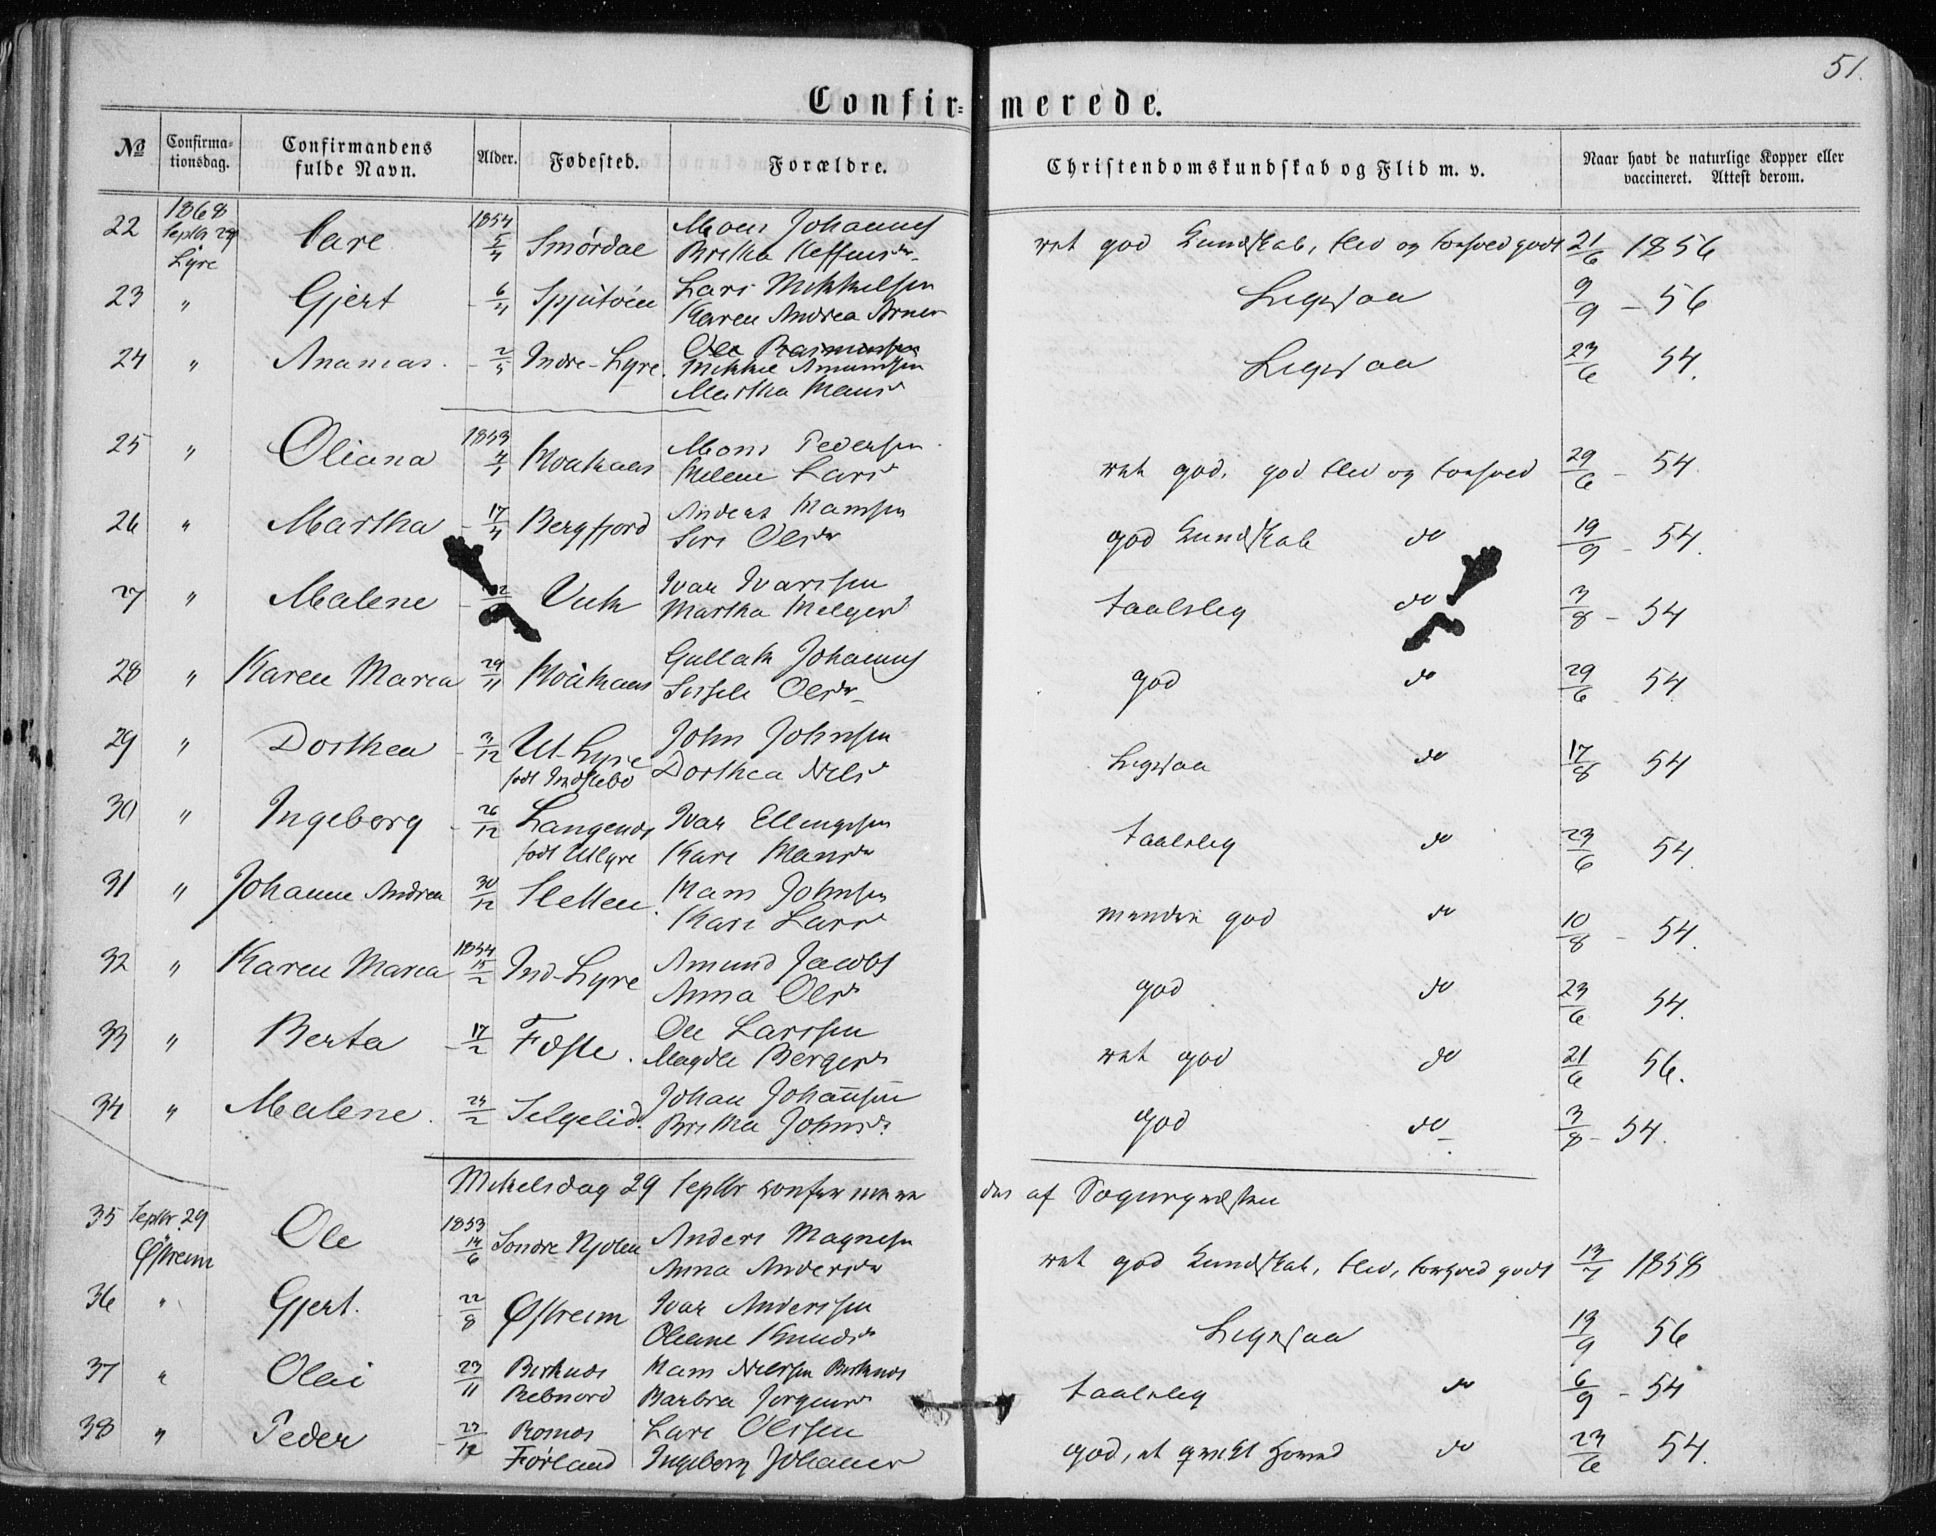 51.
Confir- merede.
No Confirma-tionsdag. Confirmandens fulde Navn. Alder. Fødested. Forældre. Christendomskundskab og Flid m. v. Naar havt de naturlige Kopper eller vaccineret. Attest derom.
22 1868 Septbr 28 Lyre Lare 1854 5/4 Smørdal Mons Johannes
Britha Steffensdr. ret god Kundskab, Flid og Forhold godt 21/6 1856
23 " Gjert - 6/4 Spjutøen Lars Mikkelsen
Karen Andrea Arner Ligesaa 9/9 - 56
24 " Ananias - 2/5 Indre-Lyre Ole Rasmussen
Mikkel Amundsen
Martha Mans Ligesaa 23/6 54.
25 " Oliana 1853 4/1 Moahaas Mons Pedersen
Melene Lars ret god, god Flid og Forhold 29/6 - 54
26 " Martha - 17/4 Bergfjord Anders Hansen
Siri Olsdr god Kundskab do 19/9 - 54.
27 " Malene - Vik Ivar Ivarssen
Martha Melger taalelig do 3/8 - 54
28 " Karen Maria 29/11 Moahaas Gullak Johannes
Sissele Olsdr god do 29/6 54
29 " Dorthea - 3/12 Ut-Lyre
født Indrebø John Johnsen
Dorthea Nils Ligesaa do 17/8 54
30 " Ingeborg - 26/12 Langenes
født Utlyre Ivar Ellingsen
Kari Mansdr taalelig do 23/6 54.
31 " Johanne Andrea 30/12 Sletten Hans Johnsen
Kari Lars mindre god do 10/8 - 54.
32 " Karen Maria 1854 15/2 Ind-Lyre Amund Jacobs
Anna Olsdr god do 23/6 54.
33 " Berta - 17/2 Fæste. Ole Larssen
Magdle Berger ret god do 21/6 56.
34 " Malene. 24/2 Selgelid. Johan Johannsen
Britha Johnsdr. god do 3/8 - 54.
Mikelsdag 29 Septbr confirmere des af Sognepræsten
35 Septbr 29 Østreim Ole 1853 14/6 Søndre Kjølen Anders Magnesen
Anna Andersdr ret god Kundskab, Flid, Forhold godt 13/7 1858
36 " Gjert. - 22/8 Østreim Ivar Anderssen
Oleane Knudsdr Ligesaa 13/9 56
37 " Olai 23/11 Birknes
Rebnord Hans Nilssen Birknes
Barbra Jørgens taalelig do 6/9 - 54
38 " Peder - 27/12 Romnes
Førland Lars Olssen
Ingeborg Johannes god, et do 23/6 54.